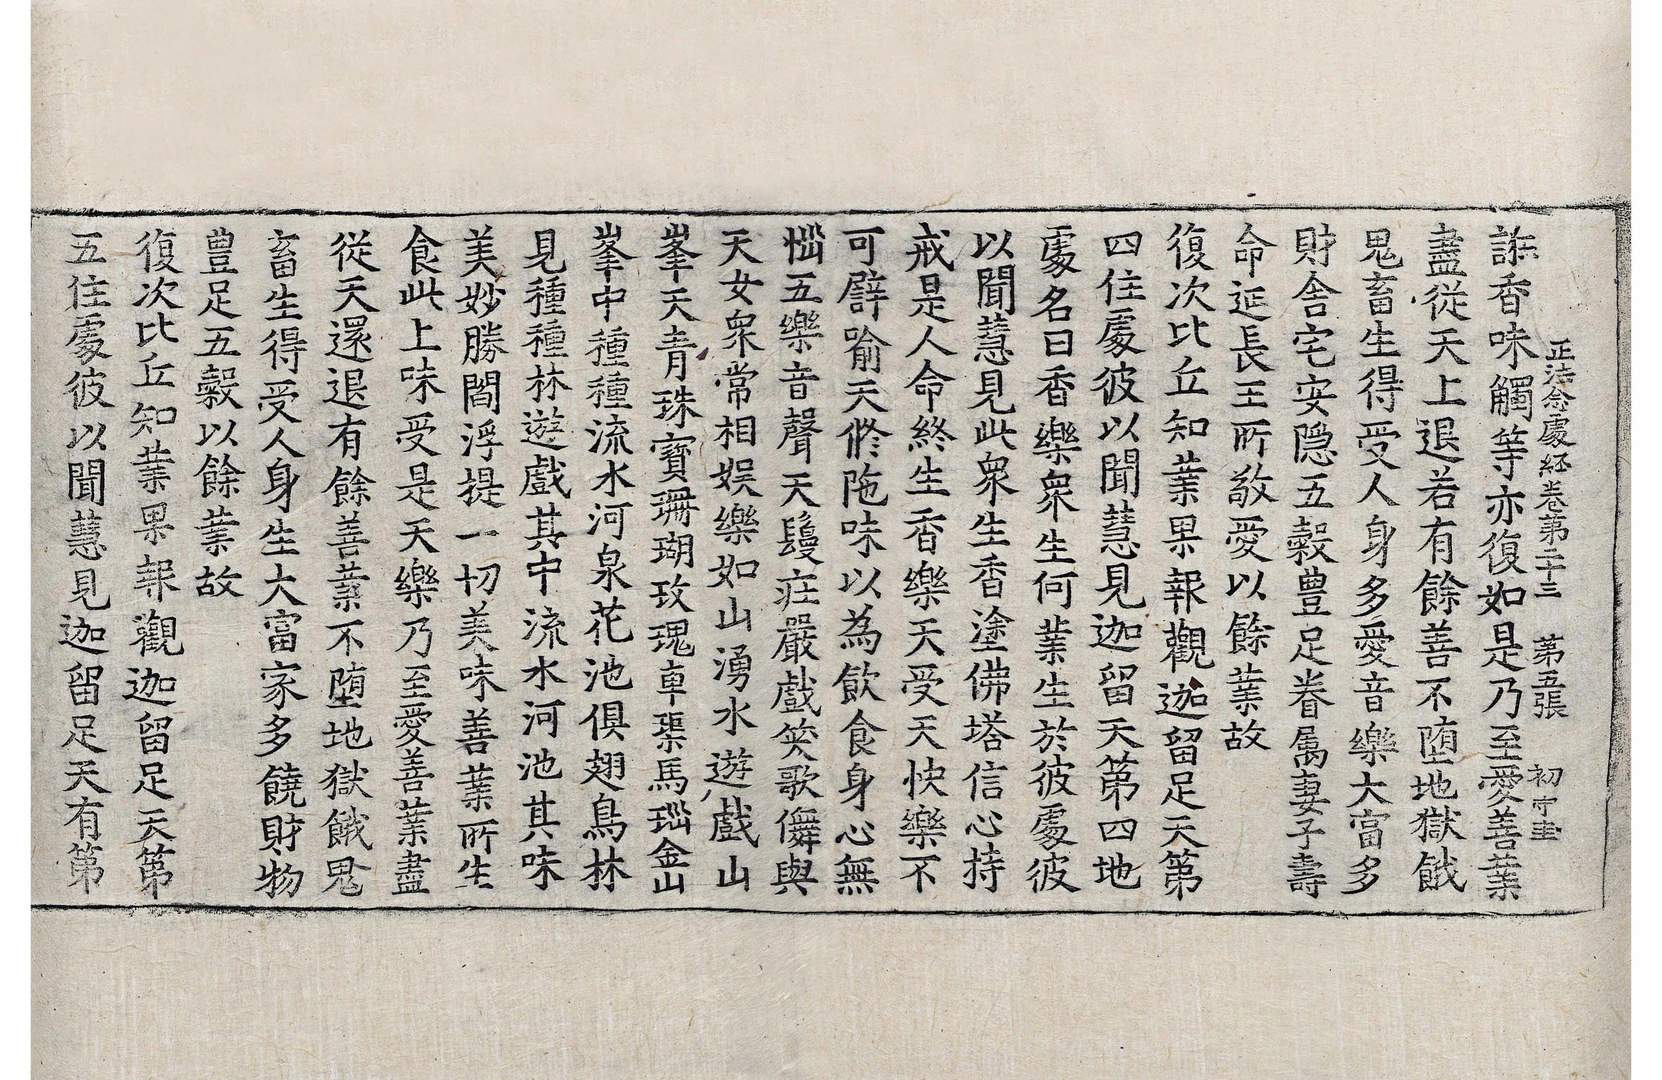 正法念處經卷第二十三 第五張 初 守圭
諸香味觸等亦復如是乃至愛善業
盡從天上退若有餘善不墮地獄餓
鬼畜生得受人身多愛音樂大富多
財舍宅安隱五穀豊足眷属妻子壽
命延長王所敬愛以餘業故
復次比丘知業果報觀迦留足天第
四住處彼以聞慧見迦留天第四地
處名曰香樂衆生何業生於彼處彼
以聞慧見此衆生香塗佛塔信心持
戒是人命終生香樂天受天快樂不
可譬喻天脩陁味以為飲食身心無
惱五樂音聲天鬘莊嚴戲笑歌儛與
天女衆常相娱樂如山湧水遊戲山
峯天青珠寶珊瑚玫瑰車璖馬瑙金山
峯中種種流水河泉花池俱翅鳥林
見種種林遊戲其中流水河池其味
美妙勝閻浮提一切美味善業所生
食此上味受是天樂乃至愛善業盡
從天還退有餘善業不墮地獄餓鬼
畜生得受人身生大富家多饒財物
豊足五穀以餘業故
復次比丘知業果報觀迦留足天第
五住處彼以聞慧見迦留足天有第